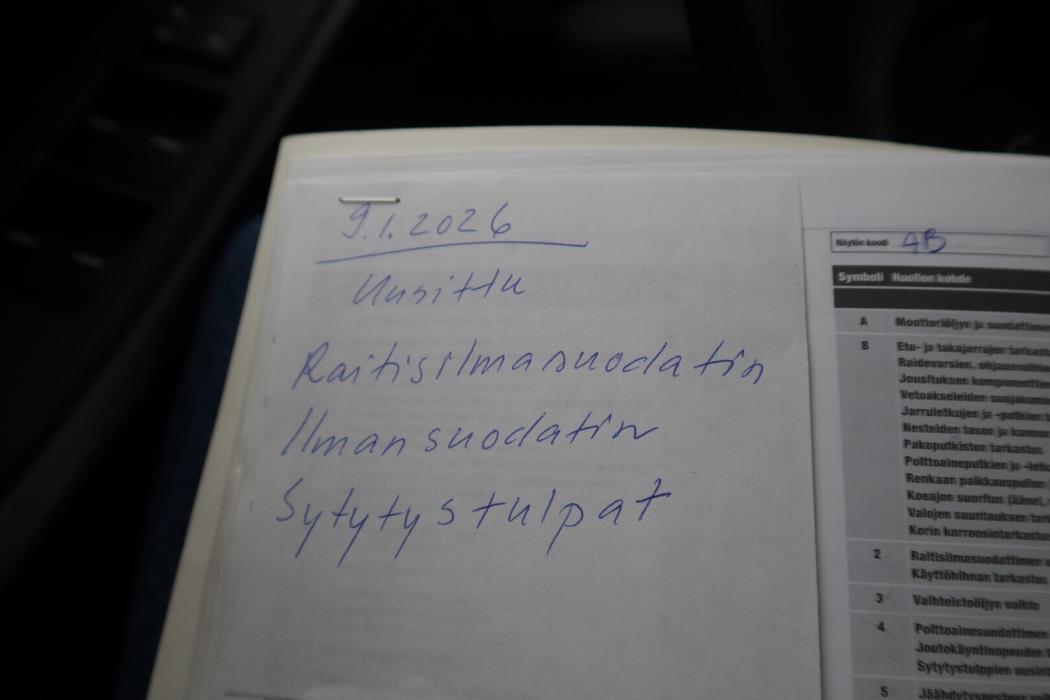 9.1.2026
Uusittu
Raitisilmasuodatin
Ilmansuodatin
Sytytystulpat
Näytön koodi AB
Symboli Huollon kohde
A Moottoriöljyn ja suodattime
B Etu- ja takajarrujen tarkast
Raidevarsien, ohjausvaihte
Jousituksen komponenttie
Vetoakseleiden suojakumi
Jarruletkujen ja -putkien t
Nesteiden tason ja kunno
Pakoputkiston tarkastus
Polttoaineputkien ja -letk
Renkaan paikkauspullon
Koeajon suoritus (äänet,
Valojen suuntauksen tark
Korin korroosiotarkastus
2 Raitisilmasuodattimen
Käyttöhihnan tarkastus
3 Vaihteistoöljyn vaihto
4 Polttoainesuodattimen
Joutokäyntinopeuden
Sytytystulppien uusin
5 Jäähdytysnesteen